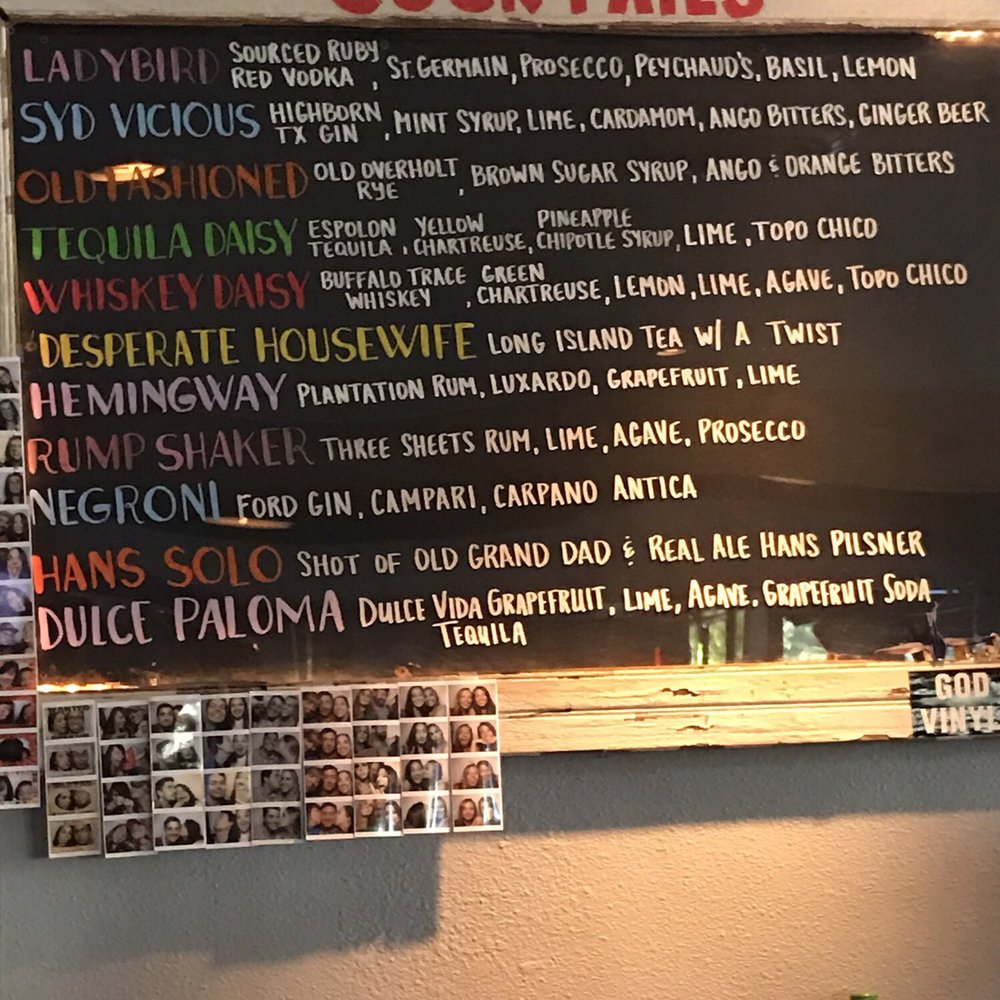 COCKTAILS
LADYBIRD SOURCED RUBY RED VODKA, ST. GERMAIN, PROSECCO, PEYCHAUD'S, BASIL, LEMON
SYD VICIOUS HIGHBORN TX GIN, MINT SYRUP, LIME, CARDAMOM, ANGO BITTERS, GINGER BEER
OLD FASHIONED OLD OVERHOLT RYE, BROWN SUGAR SYRUP, ANGO & ORANGE BITTERS
TEQUILA DAISY ESPOLON TEQUILA, YELLOW CHARTREUSE, PINEAPPLE CHIPOTLE SYRUP, LIME, TOPO CHICO
WHISKEY DAISY BUFFALO TRACE WHISKEY, GREEN CHARTREUSE, LEMON, LIME, AGAVE, TOPO CHICO
DESPERATE HOUSEWIFE LONG ISLAND TEA W/ A TWIST
HEMINGWAY PLANTATION RUM, LUXARDO, GRAPEFRUIT, LIME
RUMP SHAKER THREE SHEETS RUM, LIME, AGAVE, PROSECCO
NEGRONI FORD GIN, CAMPARI, CARPANO ANTICA
HANS SOLO SHOT OF OLD GRAND DAD & REAL ALE HANS PILSNER
DULCE PALOMA DULCE VIDA GRAPEFRUIT TEQUILA, LIME, AGAVE, GRAPEFRUIT SODA
GOD
VINYL